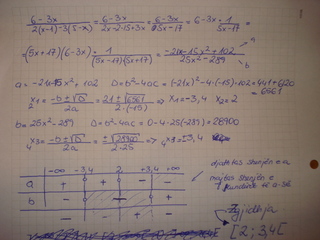 6-3x / 2(x-1)-3(5-x) = 6-3x / 2x-2-15+3x = 6-3x / 5x-17 = 6-3x · 1 / 5x-17 =
= (5x+17)(6-3x) · 1 / (5x-17)(5x+17) = -21x-15x²+102 / 25x²-289
a
b
a = -21x-15x²+102 D=b²-4ac = (-21x)²-4·(-15)·102 = 441+6120
= 6561
x1 = -b±√D / 2a = 21±√6561 / 2·(-15) → x1=-3,4 x2=2
b = 25x²-289 D=b²-4ac = 0-4·25(-289) = 28900
x3 = -b±√D / 2a = ±√28900 / 2·25 → x3=±3,4
-∞ -3,4 2 +3,4 +∞
a + + - -
b - - +
- - + -
djathtas shenjën e a
majtas shenjën e
kundërt të a-së
Zgjidhja
[2;3,4[